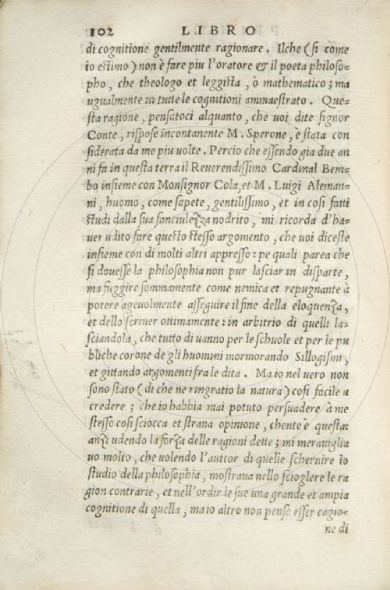 102 LIBRO
di cognitione gentilmente ragionare. Ilche (si come
io estimo) non è fare piu l'oratore & il poeta philoso-
pho, che theologo et leggista, ò mathematico; ma
ugualmente in tutte le cognitioni ammaestrato. Que-
sta ragione, pensatoci alquanto, che uoi dite signor
Conte, rispose incontanente M. Sperone, è stata con
siderata da me piu uolte. Percio che essendo gia due an
ni fa in questa terra il Reuerendissimo Cardinal Bem-
bo insieme con Monsignor Cola, et M. Luigi Aleman-
ni, huomo, come sapete, gentilissimo, et in cosi fatti
studi dalla sua fanciulezza nodrito, mi ricorda d'ha-
uer udito fare questo stesso argomento, che uoi diceste
insieme con di molti altri appresso: pe quali parea che
si douesse la philosophia non pur lasciar in disparte,
ma fuggire sommamente come nemica et repugnante à
potere ageuolmente asseguire il fine della eloquenza,
et dello scriuer ottimamente: in arbitrio di quelli la-
sciandola, che tutto dì uanno per le schuole et per le pu
bliche corone de gli huomini mormorando Sillogismi,
et gittando argomenti fra le dita. Ma io nel uero non
sono stato (di che ne ringratio la natura) cosi facile a
credere; che io habbia mai potuto persuadere à me
stesso cosi sciocca et strana opinione, chente è questa:
anzi udendo la forza delle ragioni dette; mi merauiglia
uo molto, che uolendo l'auttor di quelle schernire lo
studio della philosophia, mostraua nello scioglere le ra
gion contrarie, et nell'ordir le sue una grande et ampia
cognitione di quella, ma io altro non penso esser cagio-
ne di